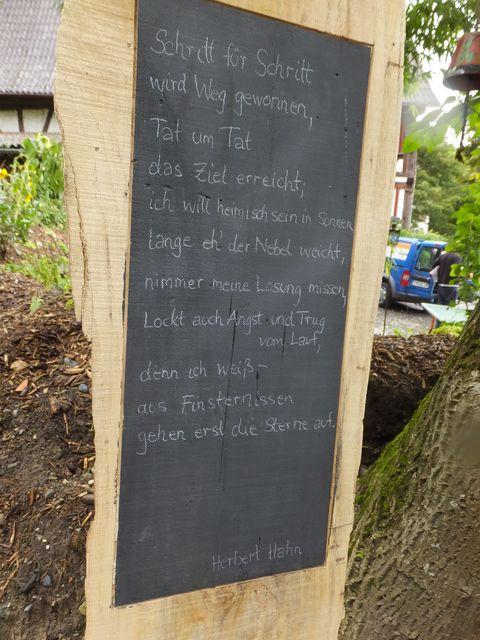 Schritt für Schritt
wird Weg gewonnen,
Tat um Tat
das Ziel erreicht;
ich will heimisch sein in Sonnen
lange eh' der Nebel weicht,
nimmer meine Losung missen,
Lockt auch Angst und Trug
vom Lauf,
denn ich weiß -
aus Finsternissen
gehen erst die Sterne auf.
Herbert Hahn